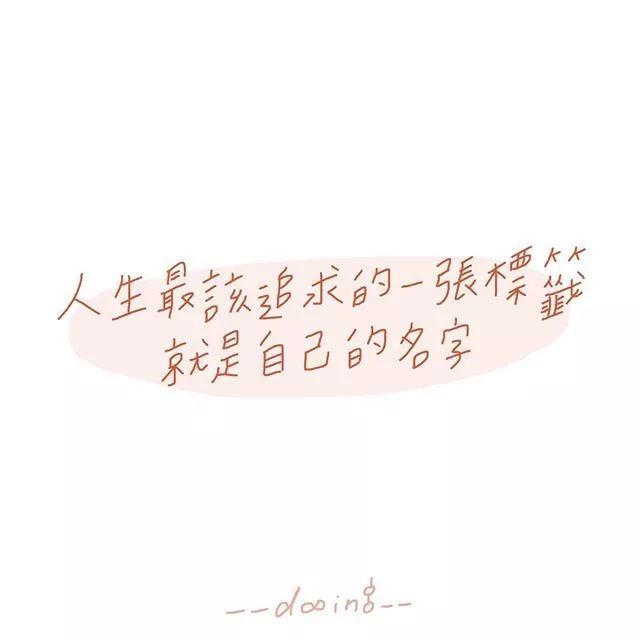 人生最該追求的一張標籤
就是自己的名字
--dooing--